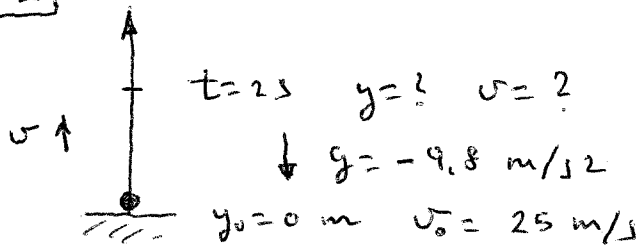 t = 2s y = ? v = ?
v ↑
↓ g = -9,8 m/s2
y₀ = 0 m v₀ = 25 m/s